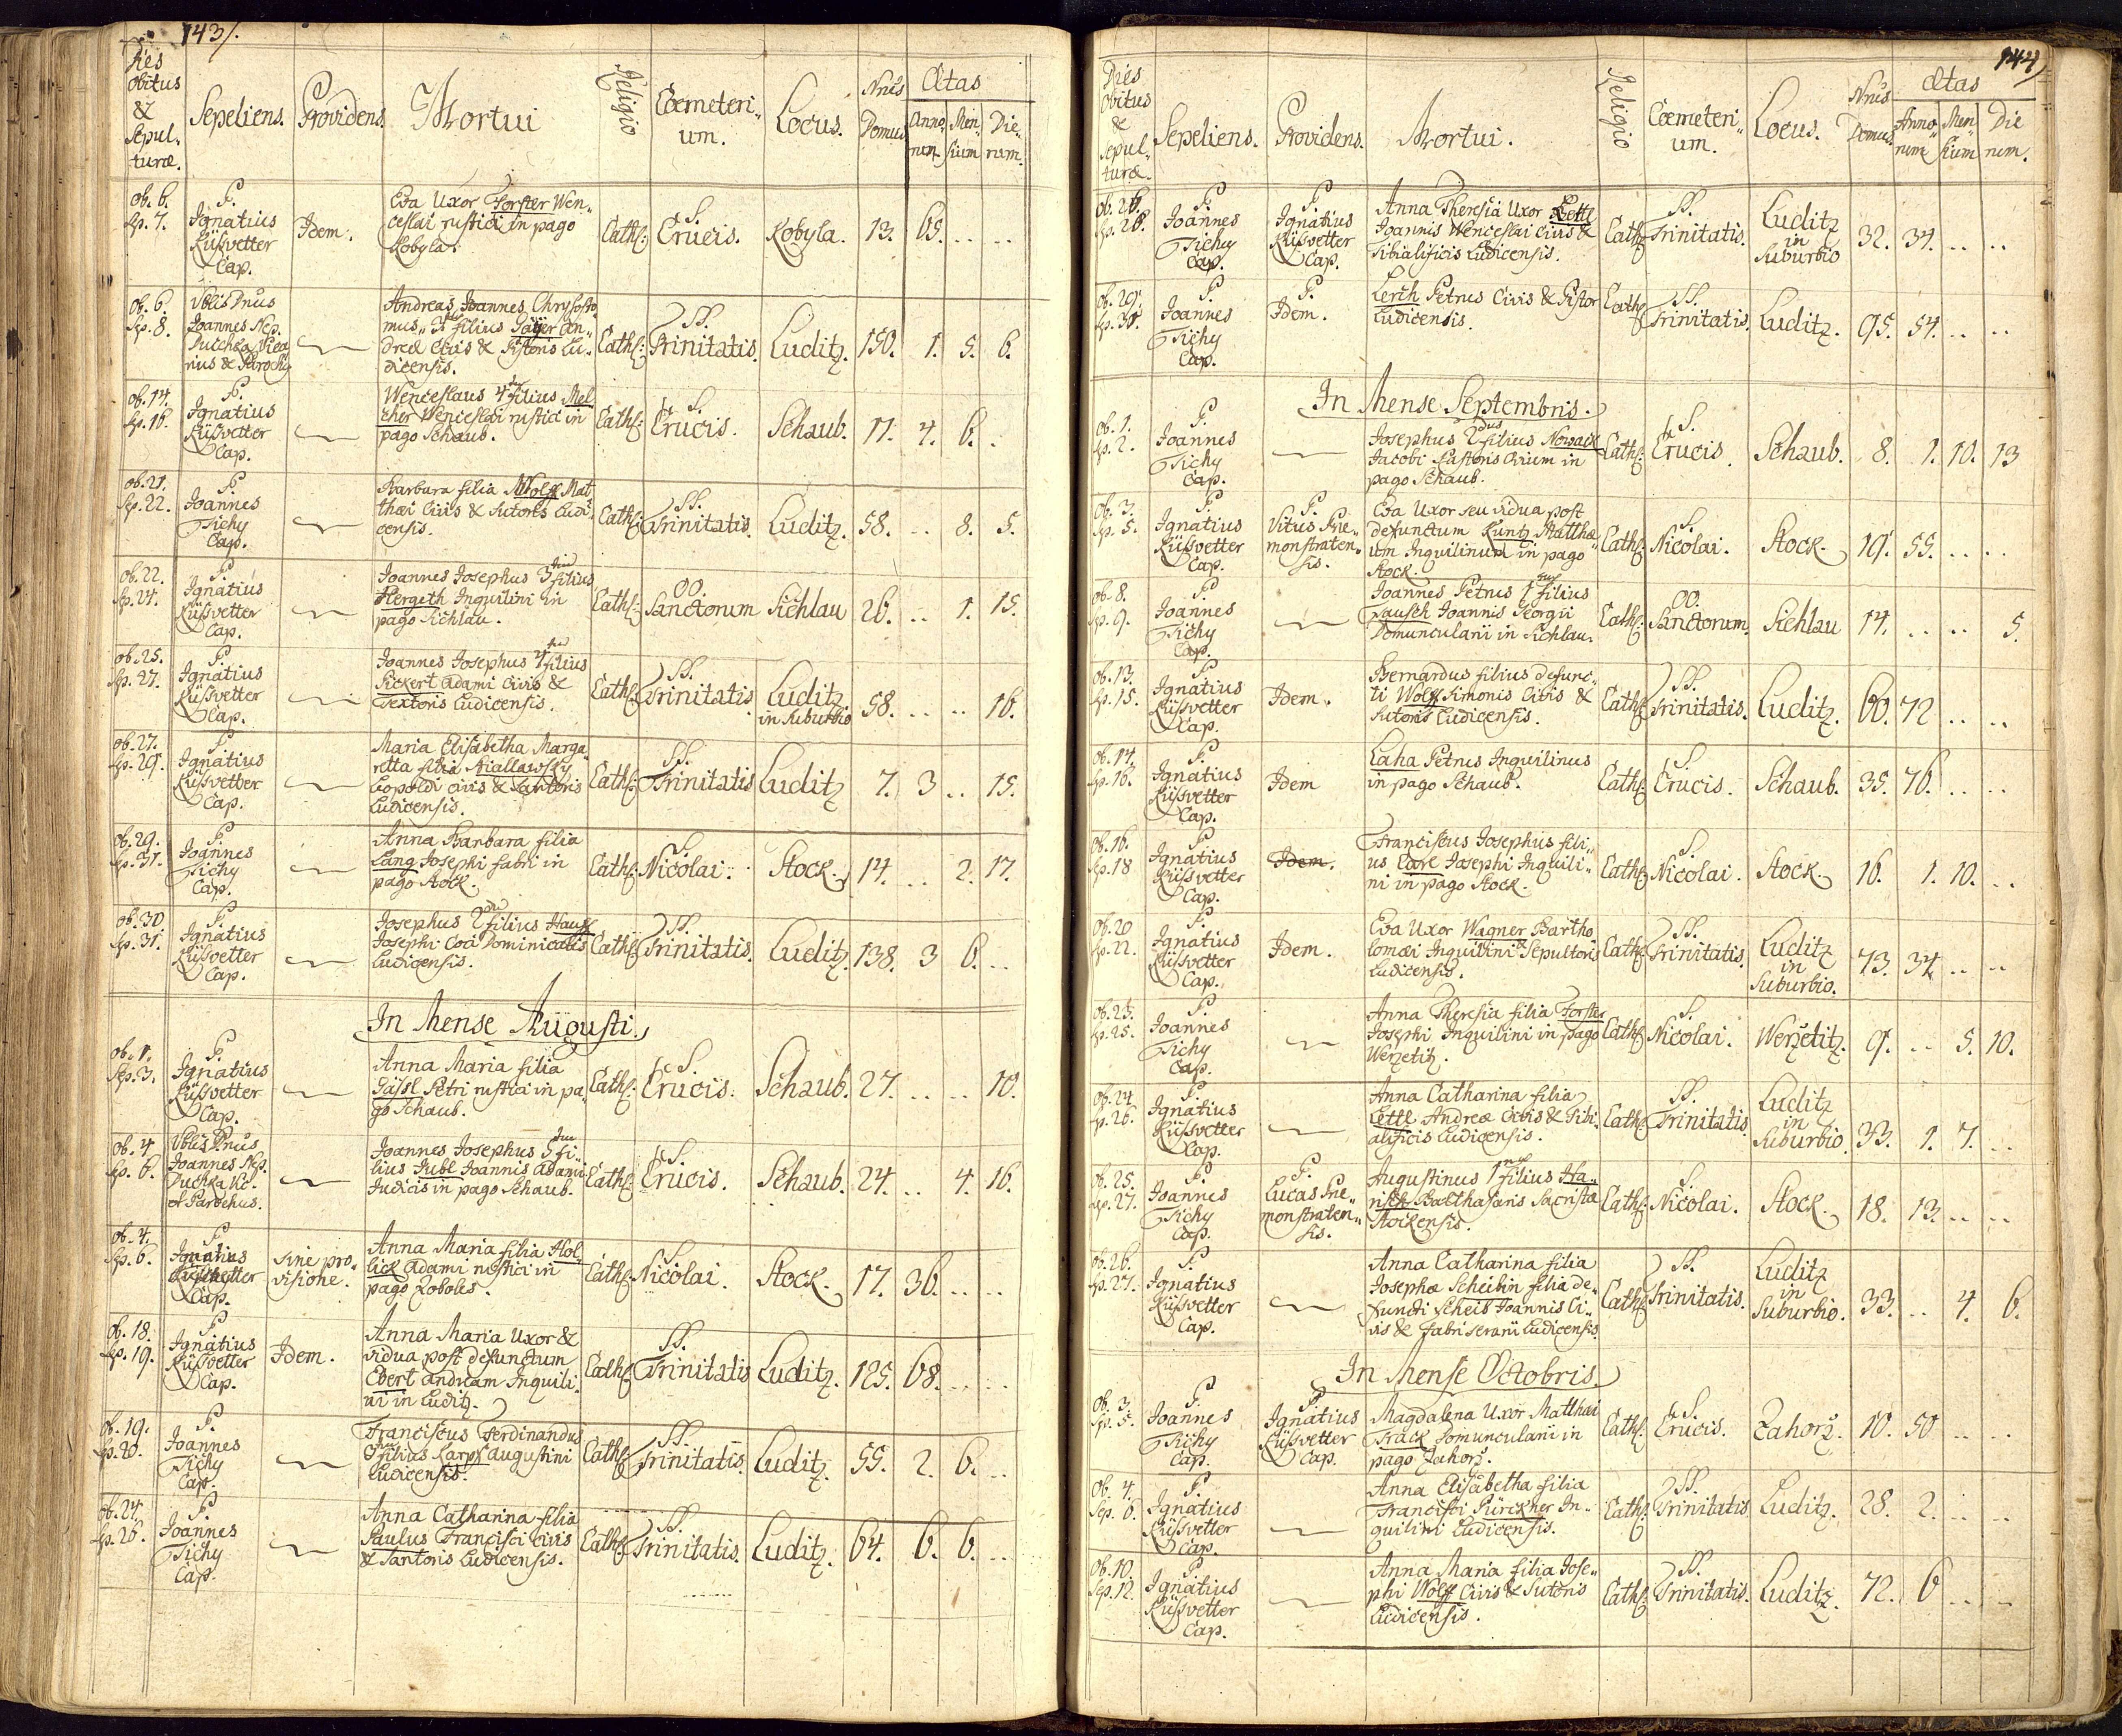 143/.
Dies obitus & Sepulturæ. Sepeliens. Providens. Mortui Religio Coemeteri„um. Locus. Nrus Domus Ætas Annorum Mensium Dierum.
ob. 6. Sp. 7. P. Ignatius Küssvetter Cap. Idem. Eva Uxor Forster Wen„
ceslai rustici in pago
Kobyla. Cath: S. Crucis. Kobyla. 13. 65. .. ..
ob. 6. Sp. 8. Vblis Dnus Joannes Nep. Puchka Vica rius & Parochy Andreas Joannes Chrysosto
mus filius Jäger An„
dreæ Civis & Pistoris Lu„
dicensis. Cath: SS. Trinitatis. Luditz. 150. 1. 5. 6.
ob. 14. Sp. 16. P. Ignatius Küssvetter Cap. Wenceslaus 4tus filius Mel
cher Wenceslai rustici in
pago Schaub. Cath: S. Crucis. Schaub. 11. 4. 6. .
ob. 21. Sep. 22. P. Joannes Tichy Cap. Barbara filia Wolff Mat
thæi Civis & Sutoris Ludi„
censis. Cath: SS. Trinitatis. Luditz. 58. .. 8. 5.
ob. 22. Sp. 24. P. Ignatius Küssvetter Cap. Joannes Josephus 3tius filius
Hergeth Inquilini in
pago Sichlau. Cath: OO. Sanctorum Sichlau 26. .. 1. 15.
ob. 25. Sp. 27. P. Ignatius Küssvetter Cap. Joannes Josephus 4tus filius
Sickert Adami Civis &
Textoris Ludicensis. Cath: SS. Trinitatis Luditz in Suburbio 58. .. .. 16.
ob. 27. Sp. 29. P. Ignatius Küssvetter Cap. Maria Elisabetha Marga„
retta filia Niallawsky
Leopoldi Civis & Sartoris
Ludicensis. Cath: SS. Trinitatis Luditz 7. 3 .. 15.
ob. 29. Sp. 31. P. Joannes Tichy Cap. Anna Barbara filia
Lang Josephi fabri in
pago Stock. Cath: S. Nicolai. Stock. 14. .. 2. 17.
ob. 30. Sp. 31. P. Ignatius Küssvetter Cap. Josephus 2dus filius Hauss
Josephi Coci Dominicalis
Ludicensis. Cath: SS. Trinitatis. Luditz. 138. 3 6. ..
In Mense Augusti.
ob. 1. Sep. 3. P. Ignatius Küssvetter Cap. Anna Maria filia
Jässl Petri rustici in pa„
go Schaub. Cath: S. Crucis. Schaub. 27. .. .. 10.
ob. 4 Sp. 6. Vblis Dnus Joannes Nep. Puchka Joannes Josephus 5tus fi„
lius Jubl Joannis Adami
Judicis in pago Schaub. Cath: S. Crucis. Schaub. 24. .. 4. 16.
ob. 4. Sp. 6. P. Ignatius Küssvetter Cap. Sine pro„visione. Anna Maria filia Hol„
lick Adami rustici in
pago Zoboles. Cath: S. Nicolai. Stock. 17. 36. .. ..
ob. 18. Sp. 19. P. Ignatius Küssvetter Cap. Idem. Anna Maria Uxor &
vidua post defunctum
Ebert Andream Inquili„
ni in Luditz. Cath: SS. Trinitatis Luditz. 125. 68. .. ..
ob. 19. Sp. 20. P. Joannes Tichy Cap. Franciscus Ferdinandus
filius Karpf Augustini
Ludicensis. Cath: SS. Trinitatis. Luditz. 55. 2. 6. ..
ob. 24. Sp. 26. P. Joannes Tichy Cap. Anna Catharina filia
Paulus Francisci Civis
& Sartoris Ludicensis. Cath: SS. Trinitatis. Luditz. 64. 6. 6. ..
144/
Dies obitus & Sepulturæ. Sepeliens. Providens. Mortui. Religio Coemeteri„um. Locus. Nrus Domus Ætas Annorum Mensium Dierum.
ob. 26. Sp. 28. P. Joannes Tichy Cap. P. Ignatius Küssvetter Cap. Anna Theresia Uxor Lettl
Joannis Wenceslai Civis &
Tibialificis Ludicensis. Cath: SS. Trinitatis. Luditz in Suburbio 32. 34. .. ..
ob. 29. Sp. 30. P. Joannes Tichy Cap. P. Idem. Lerch Petrus Civis & Pistor
Ludicensis. Cath: SS. Trinitatis. Luditz. 95. 54. .. ..
In Mense Septembris.
ob. 1. Sp. 2. P. Joannes Tichy Cap. Josephus 2dus filius Nowack
Jacobi Pastoris Ovium in
pago Schaub. Cath: S. Crucis. Schaub. 8. 1. 10. 13
ob. 3. Sp. 5. P. Ignatius Küssvetter Cap. P. Vitus Præ„monstraten„sis. Eva Uxor seu vidua post
defunctum Kuntz Matthæ„
um Inquilinum in pago
Stock. Cath: S. Nicolai. Stock. 19. 55. .. ..
ob. 8. Sp. 9. P. Joannes Tichy Cap. Joannes Petrus 1mus filius
Pausch Joannis Georgii
Domunculani in Sichlau. Cath: OO. Sanctorum. Sichlau 14. .. .. 5.
ob. 13. Sp. 15. P. Ignatius Küssvetter Cap. Idem. Bernardus filius defunc„
ti Wolff Simonis Civis &
Sutoris Ludicensis. Cath: SS. Trinitatis. Luditz. 60. 72 .. ..
ob. 14. Sp. 16. P. Ignatius Küssvetter Cap. Idem Laha Petrus Inquilinus
in pago Schaub. Cath: S. Crucis. Schaub. 35. 76. .. ..
ob. 16. Sp. 18 P. Ignatius Küssvetter Cap. Idem. Franciscus Josephus fili„
us Carl Josephi Inquili„
ni in pago Stock. Cath: S. Nicolai. Stock. 16. 1. 10. ..
ob. 20 Sp. 22. P. Ignatius Küssvetter Cap. Idem. Eva Uxor Wagner Bartho
lomæi Inquilini & Sepultoris
Ludicensis. Cath: SS. Trinitatis. Luditz in Suburbio. 73. 34 .. ..
ob. 23. Sp. 25. P. Joannes Tichy Cap. Anna Theresia filia Forster
Josephi Inquilini in pago
Werzetitz. Cath: S. Nicolai. Werzetitz. 9. .. 5. 10.
ob. 24 Sp. 26. P. Ignatius Küssvetter Cap. Anna Catharina filia
Lettl Andreæ Civis & Tibi„
alificis Ludicensis. Cath: SS. Trinitatis. Luditz in Suburbio 33. 1. 7. ..
ob. 25. Sp. 27. P. Joannes Tichy Cap. P. Lucas Præ„monstraten„sis. Augustinus 1mus filius Ha„
nisch Balthasaris Sacristæ
Stockensis. Cath: S. Nicolai. Stock. 18. 13. .. ..
ob. 26. Sp. 27. P. Ignatius Küssvetter Cap. Anna Catharina filia
Josephæ Scheibin filia de„
functi Scheib Joannis Ci„
vis & fabri serarii Ludicensis Cath: SS. Trinitatis. Luditz in Suburbio. 33. .. 4. 6.
In Mense Octobris.
ob. 3. Sp. 5. P. Joannes Tichy Cap. P. Ignatius Küssvetter Cap. Magdalena Uxor Matthæi
Track Domunculani in
pago Zahorz. Cath: S. Crucis. Zahorz. 10. 50 .. ..
ob. 4. Sep. 6. P. Ignatius Küssvetter Cap. Anna Elisabetha filia
Francisci Pürckner In„
quilini Ludicensis. Cath: SS. Trinitatis Luditz. 28. 2. .. ..
ob. 10. Sep. 12. P. Ignatius Küssvetter Cap. Anna Maria filia Jose„
phi Wolff Civis & Sutoris
Ludicensis. Cath: SS. Trinitatis. Luditz. 72. 6 .. ..